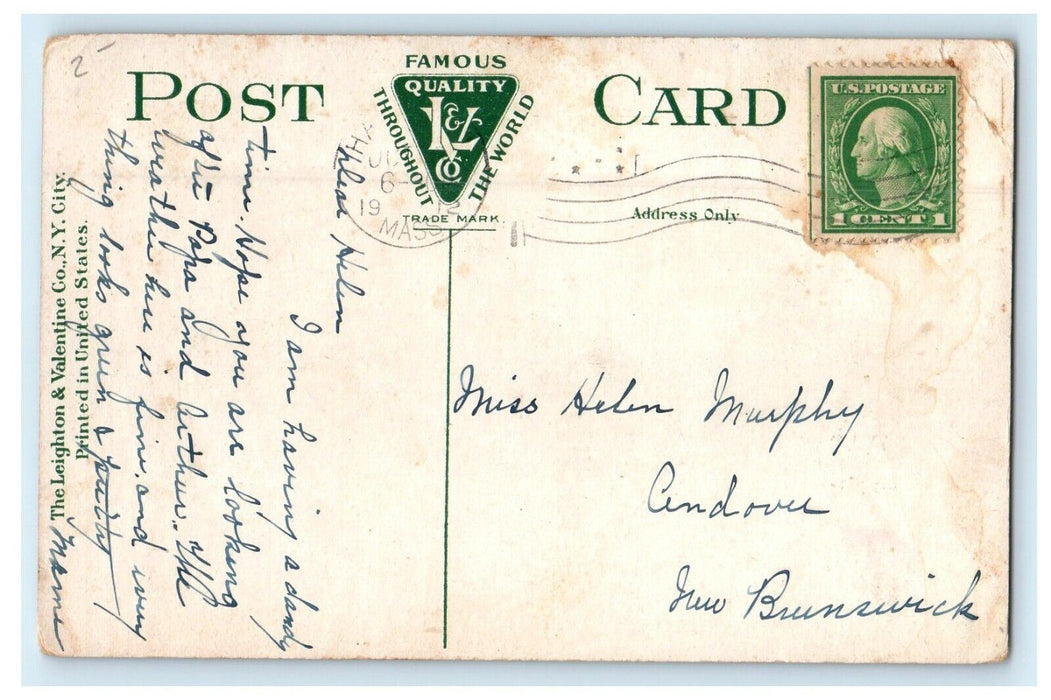 2
POST CARD
FAMOUS
QUALITY
L&V
CO
THROUGHOUT THE WORLD
TRADE MARK.
U.S. POSTAGE
1 CENT 1
6-
19 12
MASS
Address Only
Dear Helen
I am having a dandy
time. Hope you are looking
after Papa and Arthur. The
weather here is fine, and every
thing looks green & pretty
Mame
Miss Helen Murphy
Andover
New Brunswick
The Leighton & Valentine Co., N.Y. City.
Printed in United States.